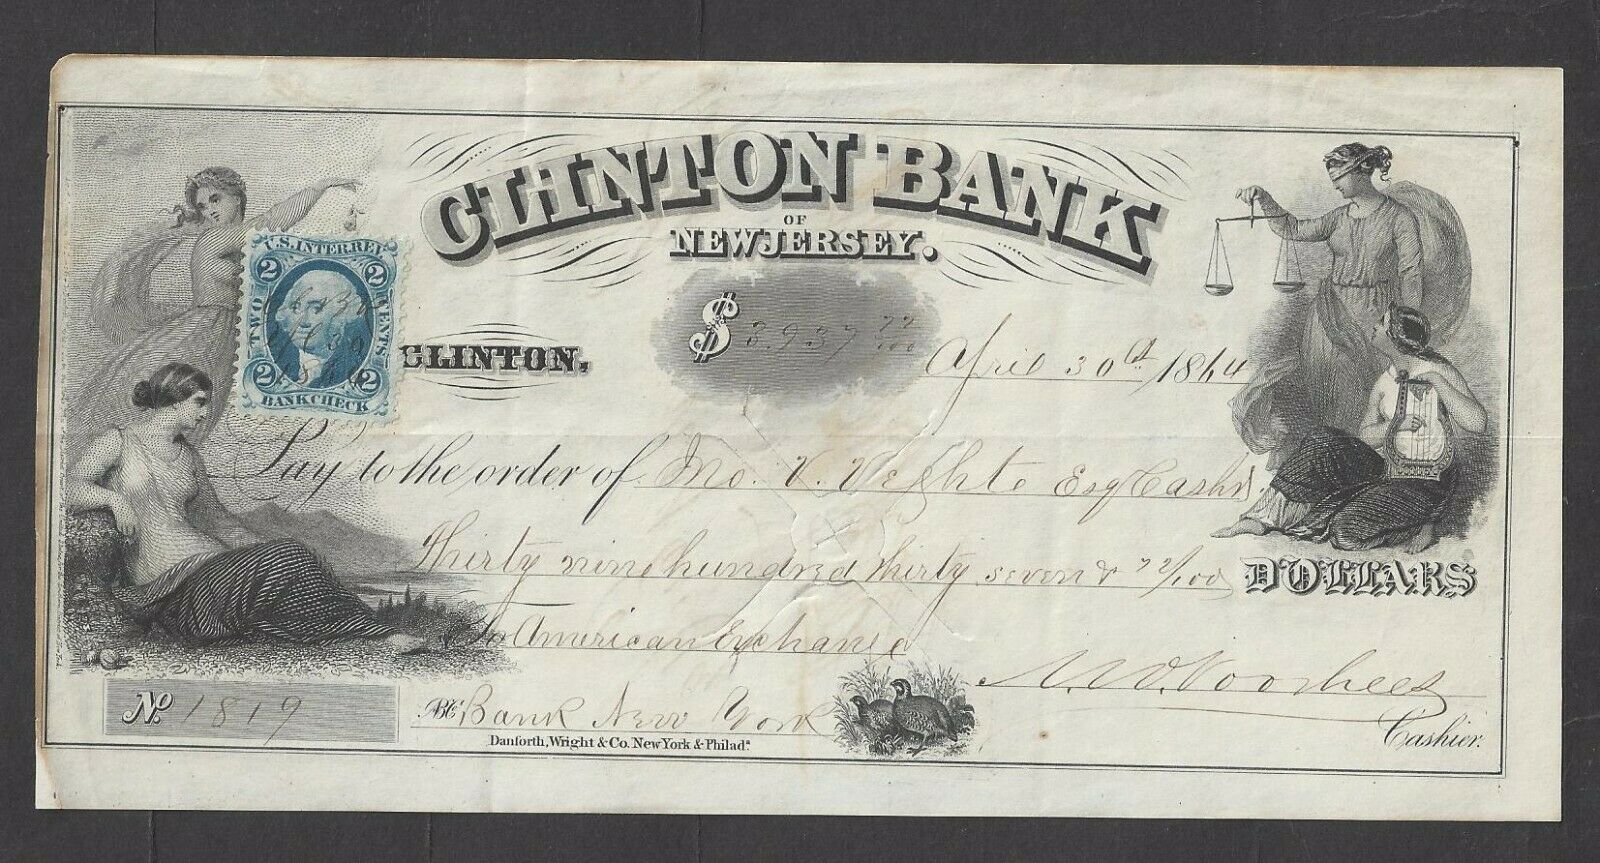 CLINTON BANK
OF
NEW JERSEY.
U.S. INTER. REV.
2 2
TWO CENTS
2 2
BANK CHECK
1864
CLINTON,
$ 3.937 72/100
April 30th 1864
Pay to the order of Jno. V. Veghte Esq Cash'r
Thirty nine hundred thirty seven & 72/100 DOLLARS
To American Exchange
Bank New York
No. 1819
Voorhees
Cashier.
Danforth, Wright & Co. New York & Philada.